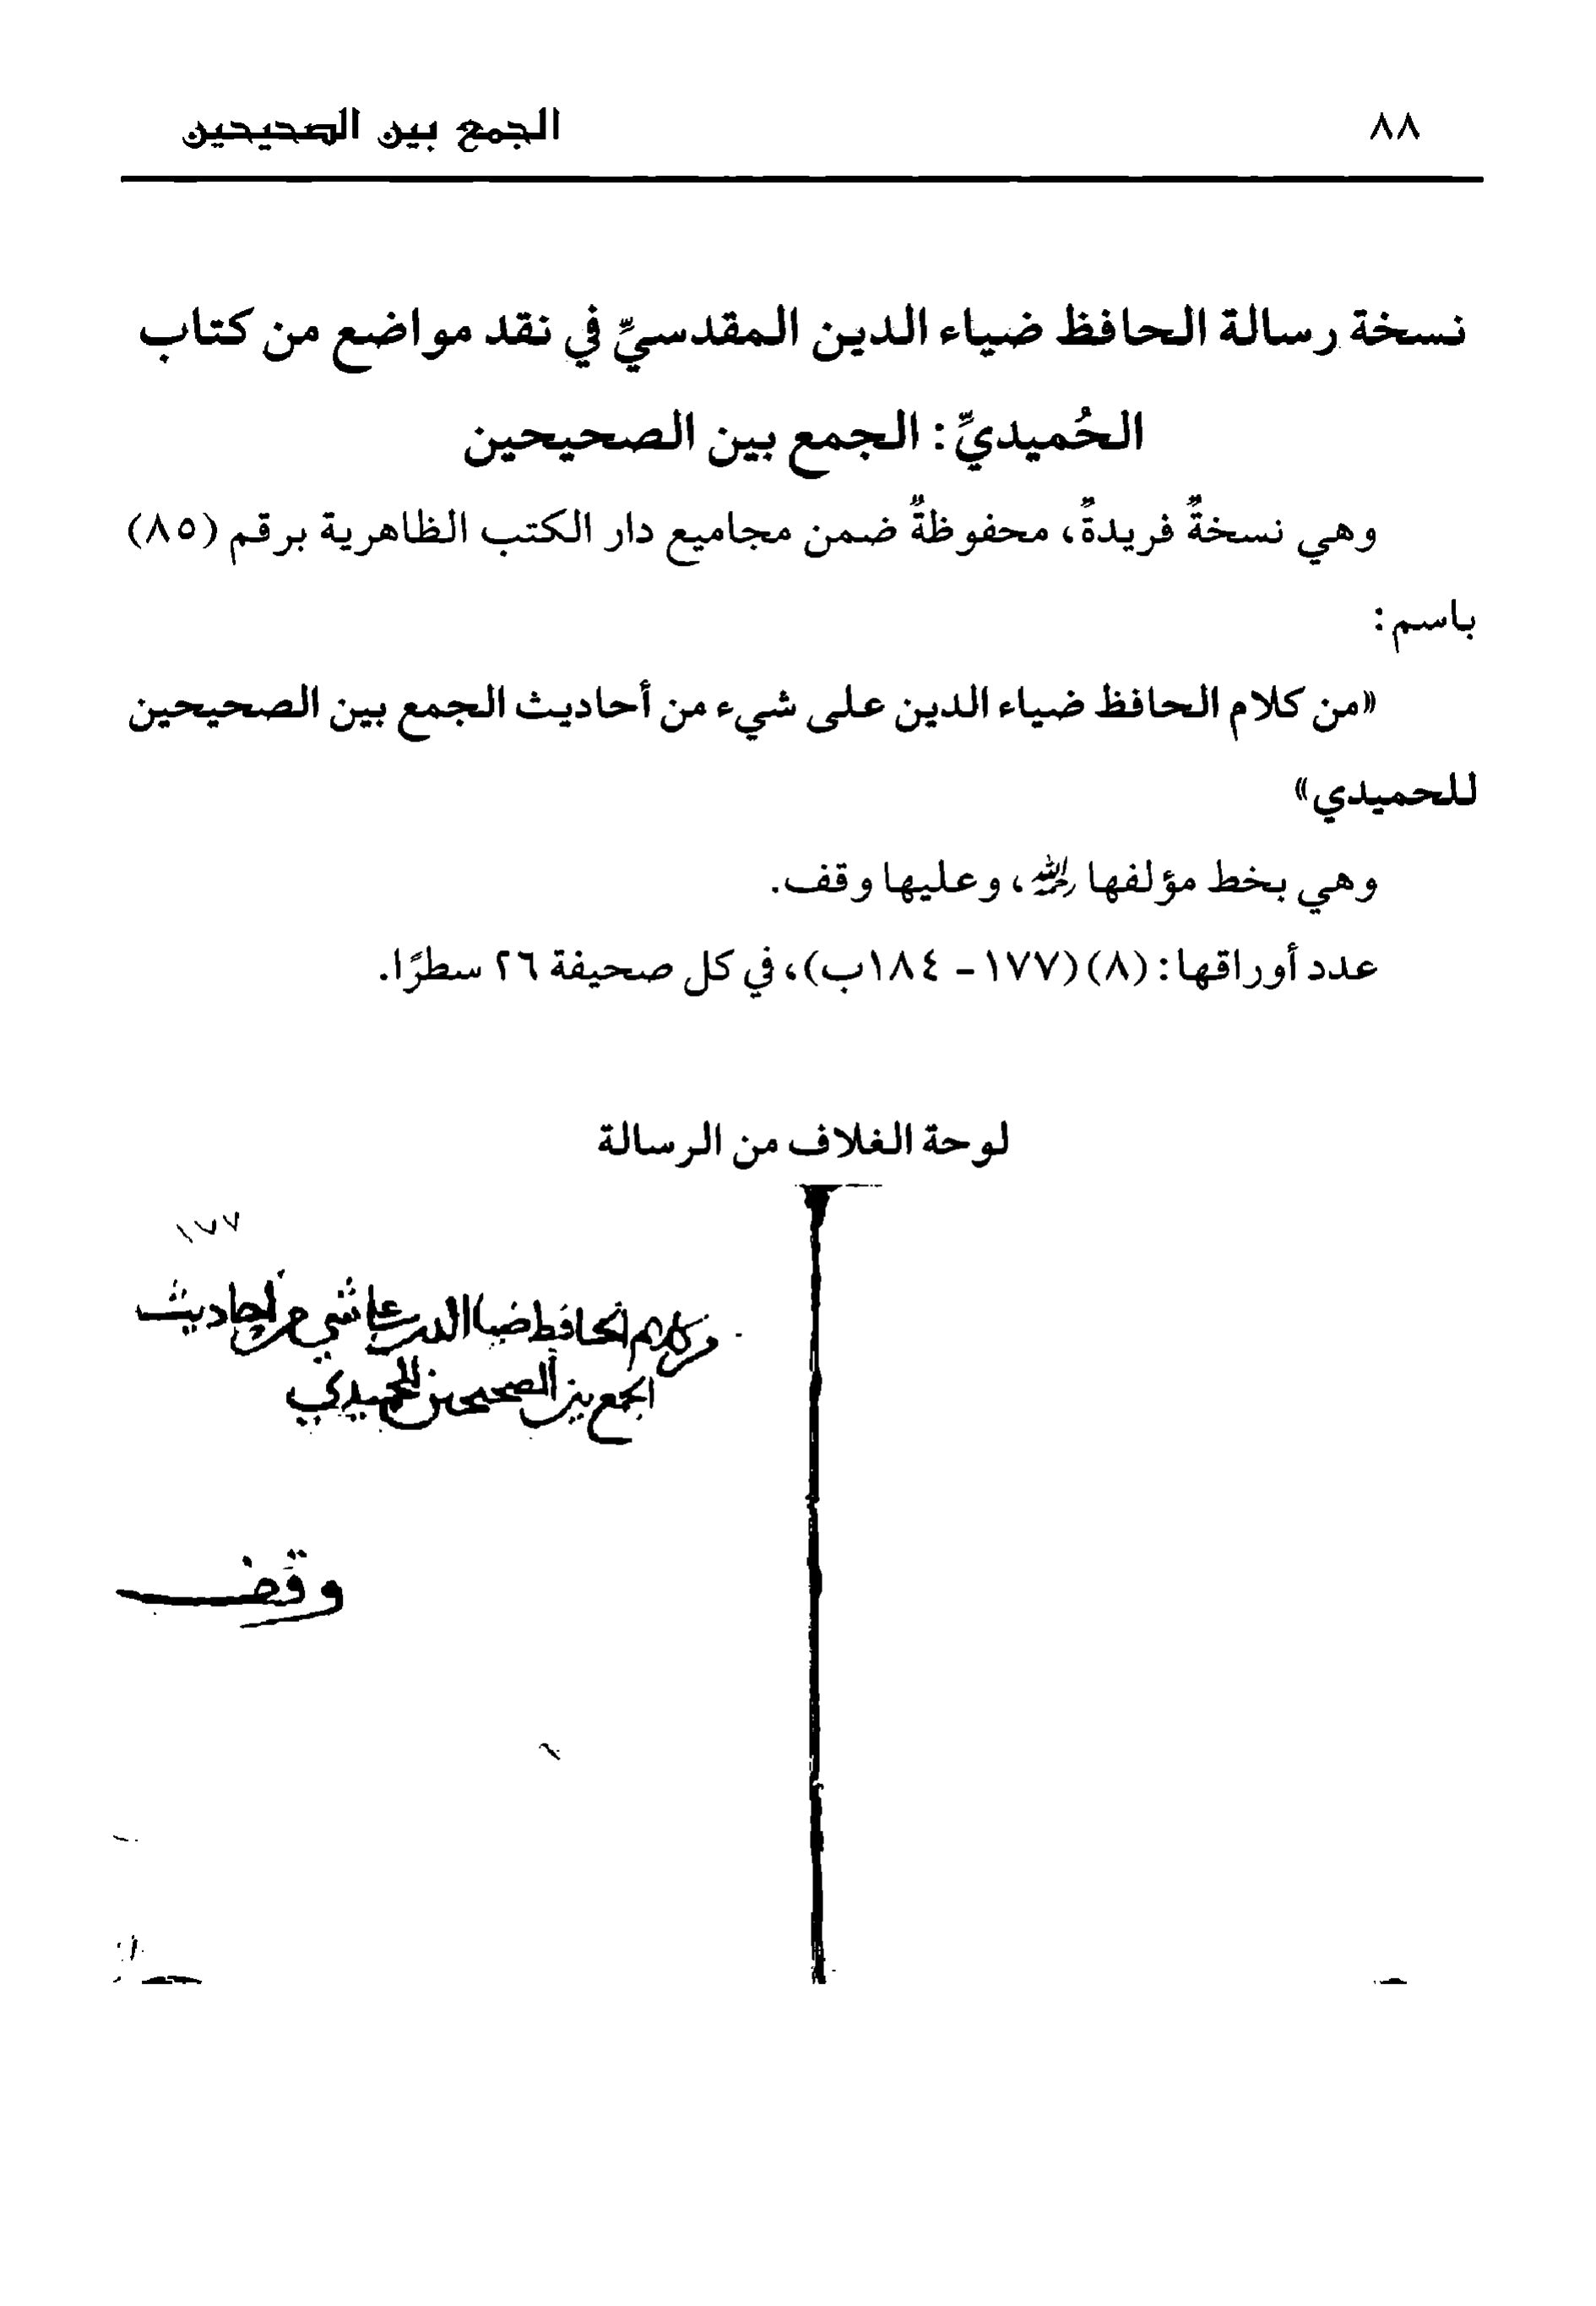 ٨٨ الجمع بين الصحيحين
نسخة رسالة الحافظ ضياء الدين المقدسيِّ في نقد مواضع من كتاب
الحُميديِّ: الجمع بين الصحيحين
وهي نسخةٌ فريدةٌ، محفوظةٌ ضمن مجاميع دار الكتب الظاهرية برقم (٨٥)
باسم:
«من كلام الحافظ ضياء الدين على شيء من أحاديث الجمع بين الصحيحين
للحميدي»
وهي بخط مؤلفها رحمه الله، وعليها وقف.
عدد أوراقها: (٨) (١٧٧ - ١٨٤ب)، في كل صحيفة ٢٦ سطرًا.
لوحة الغلاف من الرسالة
١٧٧
من كلام الحافظ ضيا الدين على شي من أحاديث
الجمع بين الصحيحين للحميدي
وقف